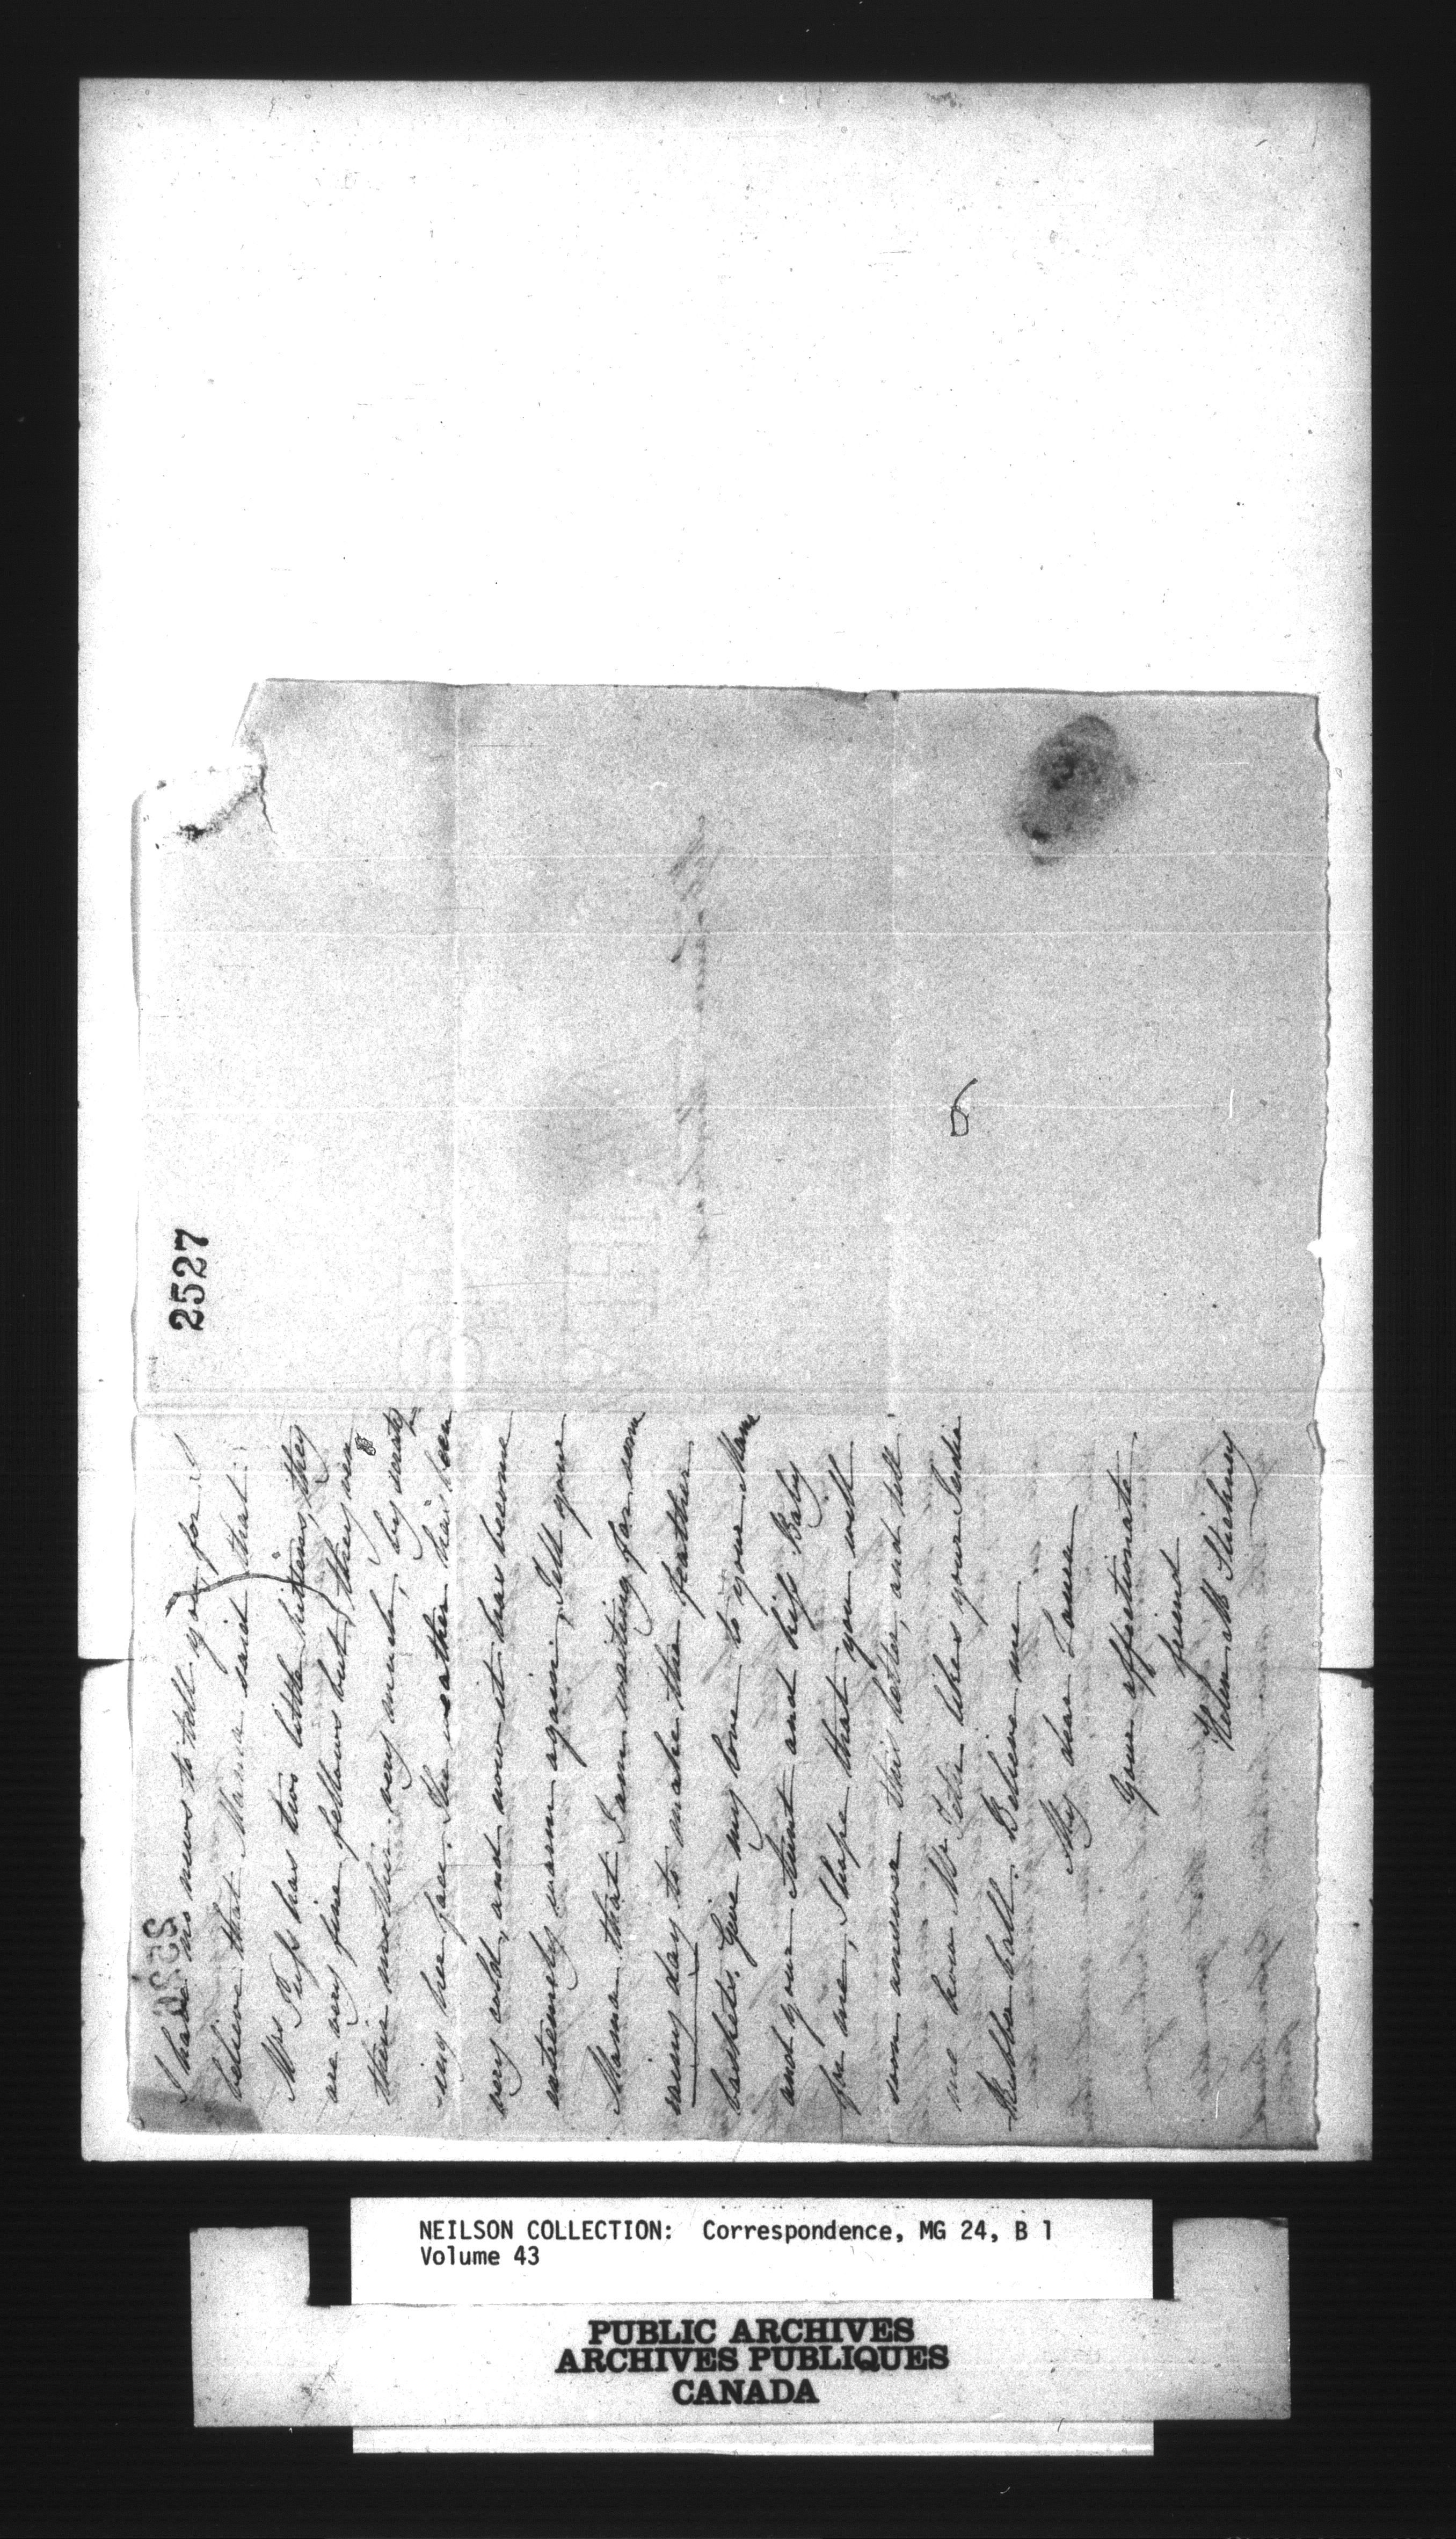 I have no news to tell you for I
believe that Mama said that
Mrs Puss has two little kittens, they
are very fine fellows but they are
their mother very much, by
ing her face. The weather has been
very cold, and now it has become
extremely warm again, Tell your
Mama that I am waiting for some
rainy day to make the feather
baskets. Give my love to your Mama
and your Aunt and kiss Baby
for me, I hope that you will
soon answer this letter, and tell
me how Mr Peter likes your India
Rubber ball. Believe me
My dear
Your affectionate
friend
Helen
2527
6
NEILSON COLLECTION: Correspondence, MG 24, B 1
Volume 43
PUBLIC ARCHIVES
ARCHIVES PUBLIQUES
CANADA